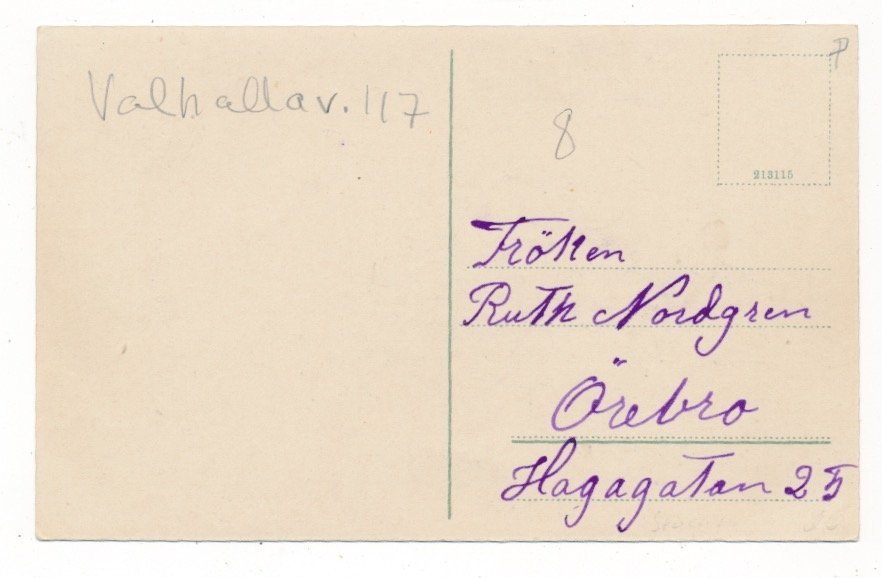 Valhallav. 117
8
P
213115
Fröken
Ruth Nordgren
Örebro
Hagagatan 25